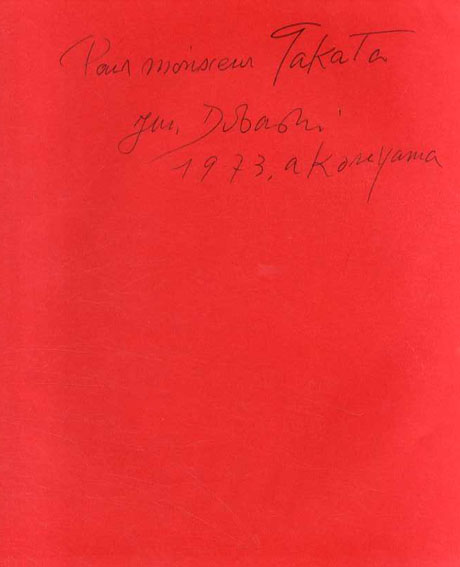 Pour monsieur Takata
Jun Dobashi
1973. a Koriyama